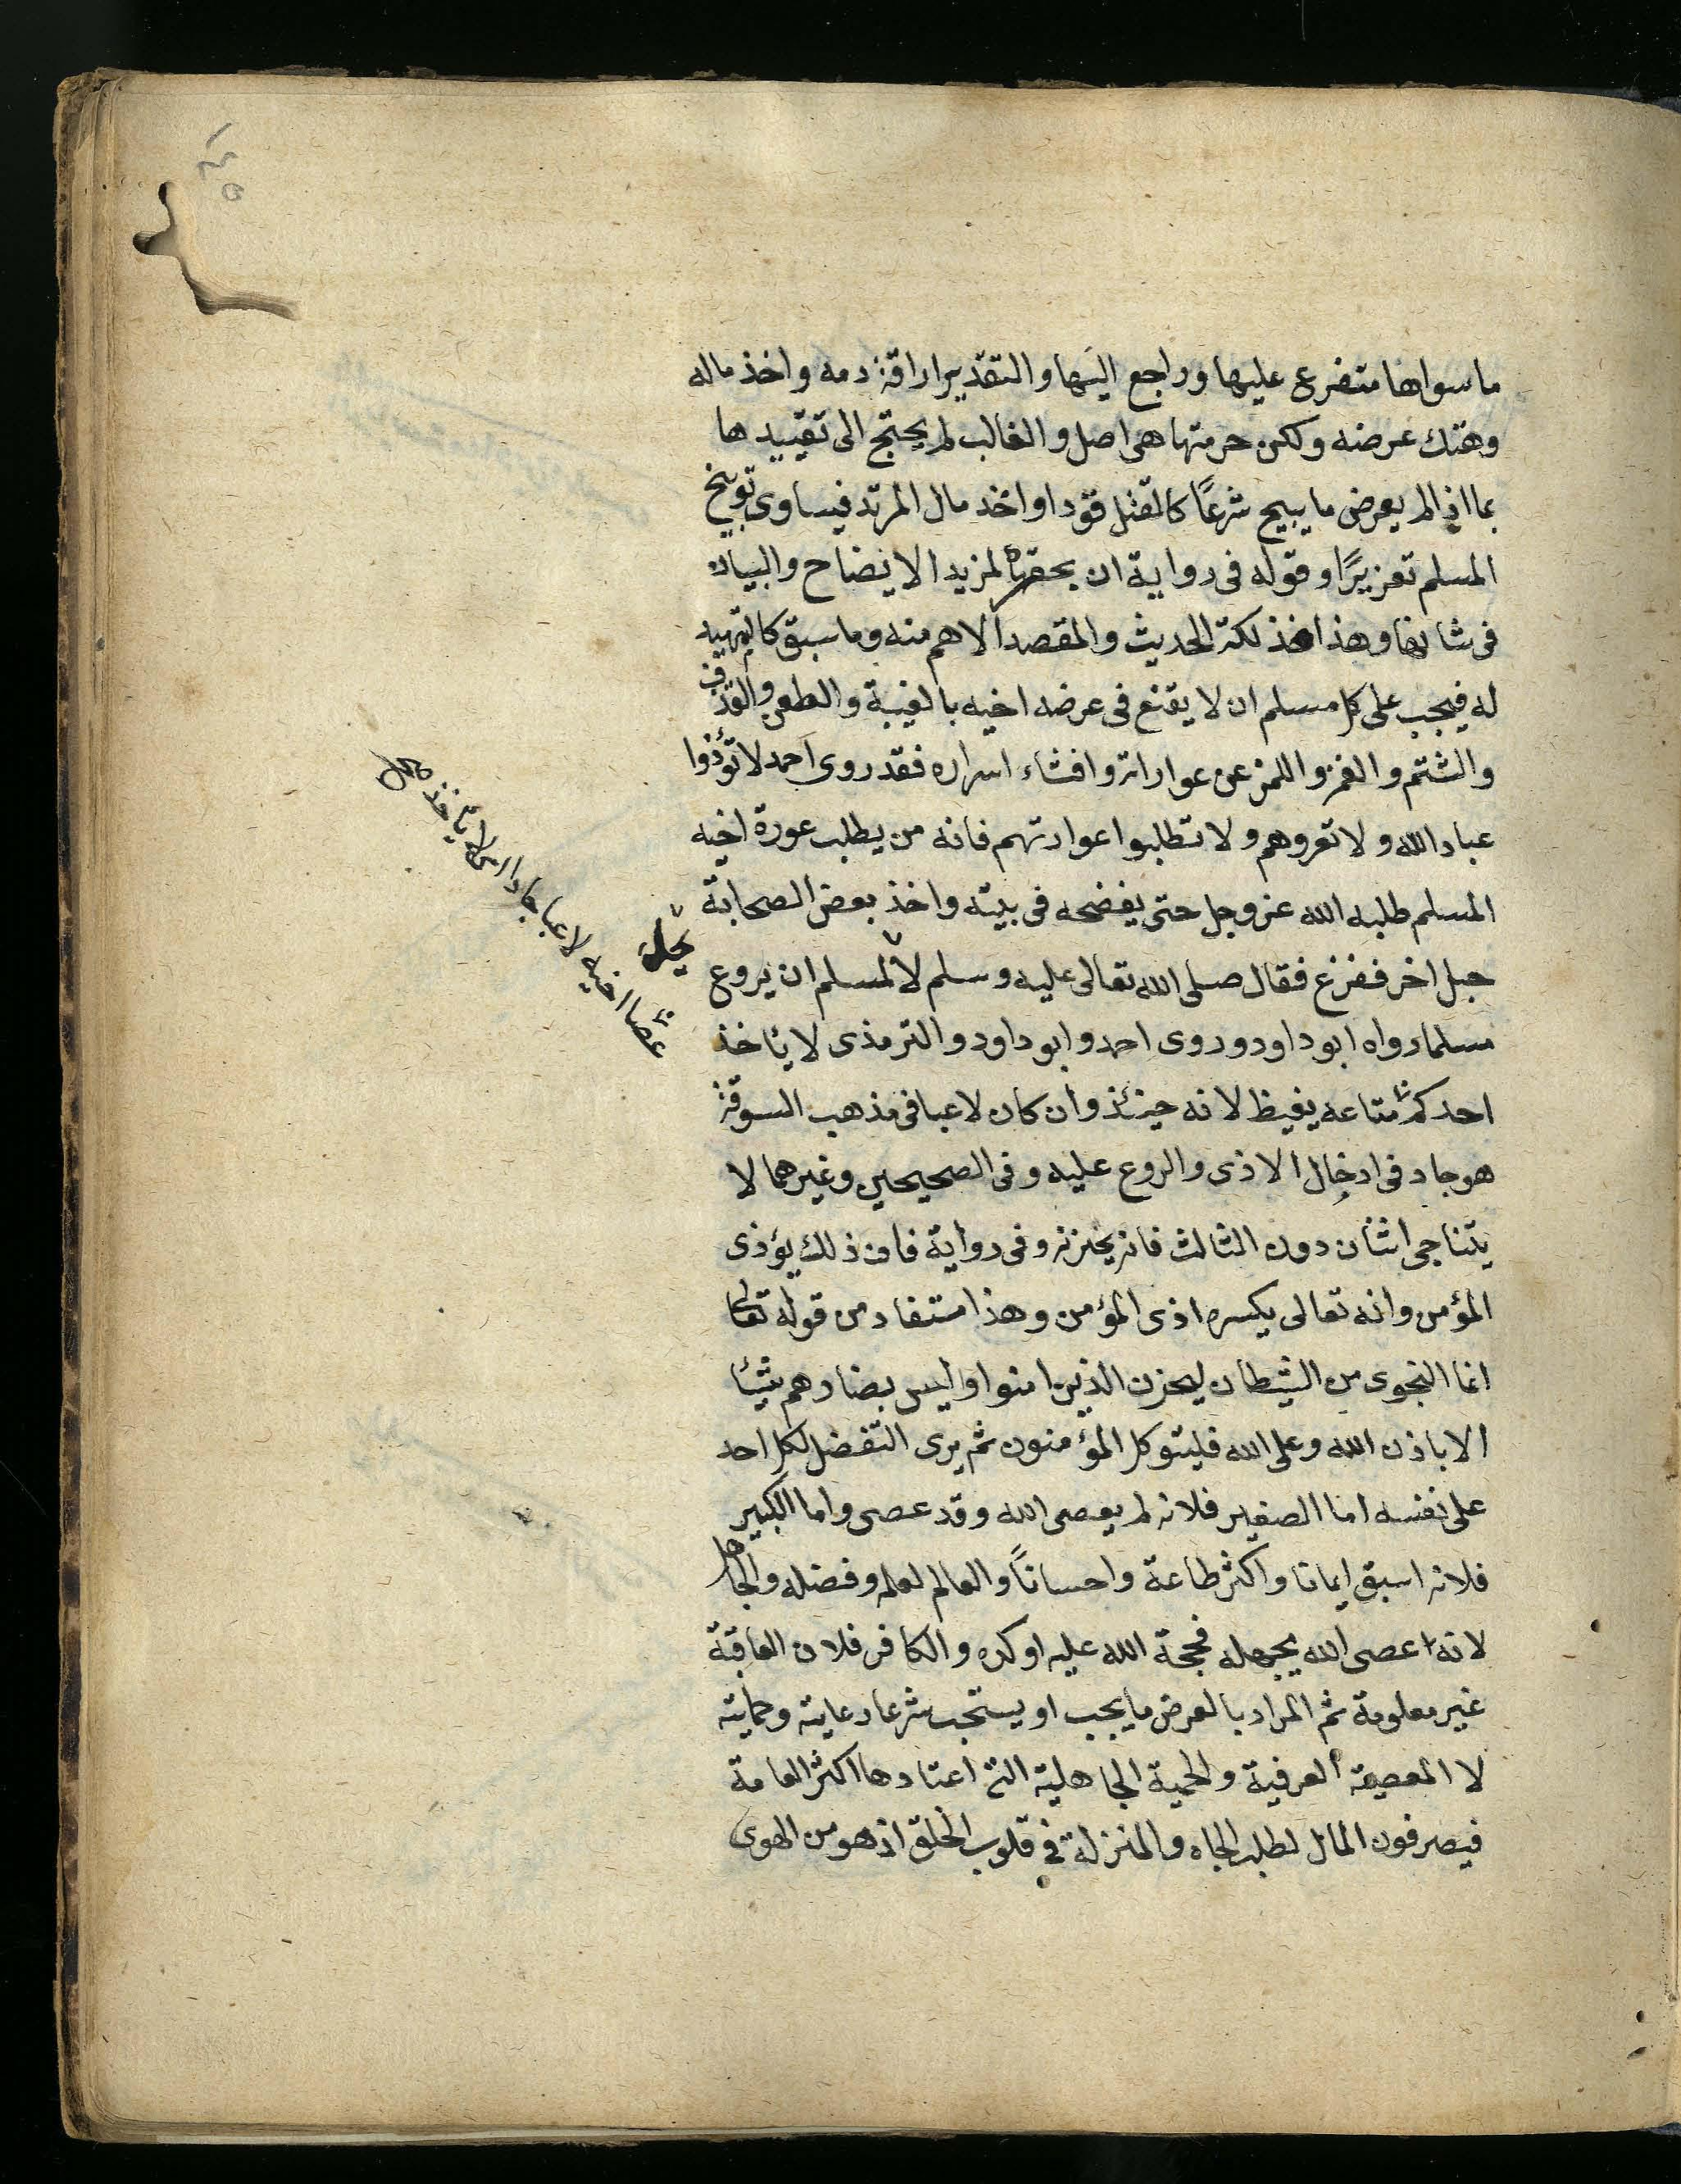 ما سواها متفرع عليها وراجع اليها والتقدير اراقة دمه واخذ ماله
وهتك عرضه ولكن حرمتها هى اصل والغالب لم يحتج الى تقييدها
بما اذا لم يعرض ما يبيح شرعًا كالقتل قودا واخذ مال المرتد فيساوى توبيخ
المسلم تعزيرًا وقوله فى رواية ان يحقره لمزيد الايضاح والبيان
فى شانها وهذا فذلكة الحديث والمقصد الاهم منه وما سبق كالتمهيد
له فيجب على كل مسلم ان لا يقع فى عرضه اخيه بالغيبة والطعن والقذف
والشتم والغمز واللمز عن عوراته وافشاء اسراره فقد روى احمد لا تؤذوا
عباد الله ولا تعروهم ولا تطلبوا عوراتهم فانه من يطلب عورة اخيه
المسلم طلبه الله عز وجل حتى يفضحه فى بيته واخذ بعض الصحابة
حبل اخر ففزع فقال صلى الله تعالى عليه وسلم لا لمسلم ان يروع
يحل
مسلما رواه ابو داود وروى احمد وابو داود والترمذى لا ياخذ
احدكم متاعه يغيظ لانه حينئذ وان كان لاعبا فى مذهب السوقة
عصا اخيه لاعبا جادا
هو جاد فى ادخال الاذى والروع عليه وفى الصحيحين وغيرهما لا
يتناجى اثنان دون الثالث فانه يحزنه وفى رواية فان ذلك يؤذى
المؤمن وانه تعالى يكره اذى المؤمن وهذا مستفاد من قوله تعالى
انما النجوى من الشيطان ليحزن الذين امنوا وليس بضارهم شيئا
الا باذن الله وعلى الله فليتوكل المؤمنون ثم يرى التفضل لكل احد
على نفسه اما الصغير فلانه لم يعصى الله وقد عصى واما الكبير
فلانه اسبق ايمانا واكثر طاعة واحسانًا والعالم لعلمه وفضله والجاهل
لانه اعصى الله بجهله فحجة الله عليه اوكد والكافر فلان العاقبة
غير معلومة ثم المراد بالعرض ما يجب او يستحب شرعا رعايته وحمايته
لا العرفية والحمية الجاهلية التى اعتادها اكثر العامة
فيصرفون المال لطلب الجاه والمنزلة فى قلوب الخلق اذ هو من الهوى